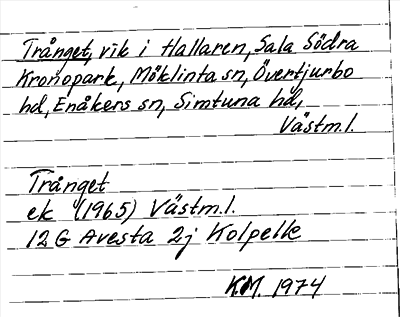 Trånget, vik i Hallaren, Sala Södra
Kronopark, Möklinta sn, Övertjurbo
hd, Enåkers sn, Simtuna hd,
Västm.l.
Trånget
ek (1965) Västm.l.
12 G Avesta 2j Kolpelle
K.M. 1974